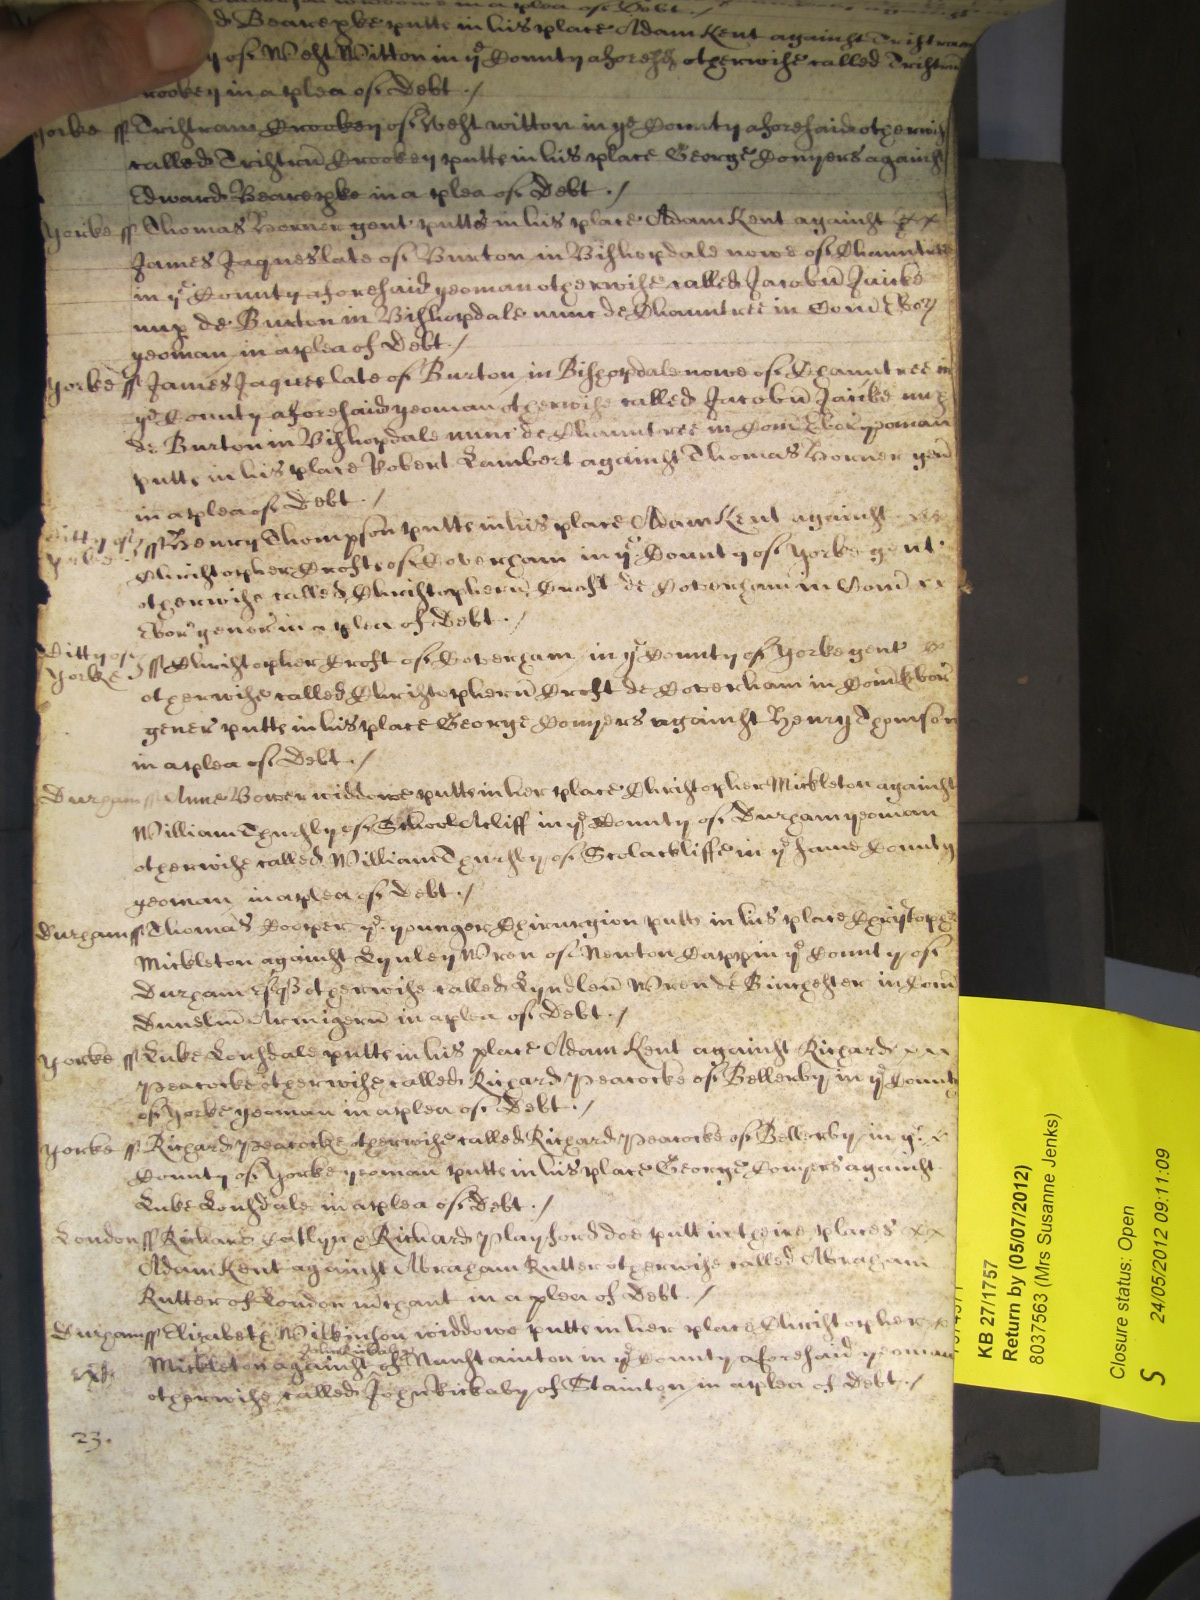 d Bearepke putts in his place Adam Kent against Tristram
y of West Witton in ye County aforesd otherwise called Tristrũ
rookey in a plea of Debt ./
Yorke ss Tristram Crookey of West witton in ye County aforesaid otherwise
called Tristrũ Crookey putts in his place George Conyers against
Edward Bearepke in a plea of Debt ./
Yorke ss Thomas Horner gent putts in his place Adam Kent against xx
James Jaques late of Burton in Bishopdale nowe of Thauntree
in ye County aforesaid yeoman otherwise called Jacobũ Jacke
nup de Burton in Bishopdale nunc de Thauntree in Com̃ Ebor
yeoman in a plea of Debt ./
Yorke ss James Jaques late of Burton in Bishopdale nowe of Thauntree in
ye County aforesaid yeoman otherwise called Jacobũ Jacke nup
de Burton in Bishopdale nunc de Thauntree in Com̃ Ebor yeoman
putts in his place Robert Lambert against Thomas Horner gen̄
in a plea of Debt ./
Citty of Yorke ss Henry Thompson putts in his place Adam Kent against xx
Christopher Crofts of Coverham in ye County of Yorke gent
otherwise called Christopherũ Croft de Coverham in Com̃ xx
Ebor gener in a plea of Debt ./
Citty of Yorke ss Christopher Croft of Coverham in ye County of Yorke gent x
otherwise called Christopherũ Croft de Coverham in Com̃ Ebor
gener putts in his place George Conyers against Henry Thomson
in a plea of Debt ./
Durham ss Anne Bower widdowe putts in her place Christopher Mickleton against
William Thursby of School Acliff in ye County of Durham yeoman
otherwise called William Thursby of Scolackliffe in ye same County
yeoman in a plea of Debt ./
Durham ss Thomas Cooper ye younger Chirurgion putts in his place Christopher
Mickleton against Lynley Wren of Newton Capp in ye County of
Durham Esqs otherwise called Lyndleũ Wren de Binchester in Com̃
Dunelm̃ Armigerũ in a plea of Debt ./
Yorke ss Luke Lonsdale putts in his place Adam Kent against Richard xxx
Peacocke otherwise called Richard Peacocke of Bellerby in ye County
of Yorke yeoman in a plea of Debt ./
Yorke ss Richard Peacocke otherwise called Richard Peacocke of Bellerby in ye x
County of Yorke yeoman putts in his place George Conyers against
Luke Lonsdale in a plea of Debt ./
London ss Richard Catlyn & Richard Playford doe putt in theire places xx
Adam Kent against Abraham Rutter otherwise called Abraham
Rutter of London m̃chant in a plea of Debt ./
Durham ss Elizabeth Wilkinson widdowe putts in her place Christopher x
John Rickaby
Mickleton against of Stainton in ye County aforesaid yeoman
otherwise called John Rickaby of Stainton in a plea of Debt ./
23.
KB 27/1757
Return by (05/07/2012)
8037563 (Mrs Susanne Jenks)
Closure status: Open
S 24/05/2012 09:11:09